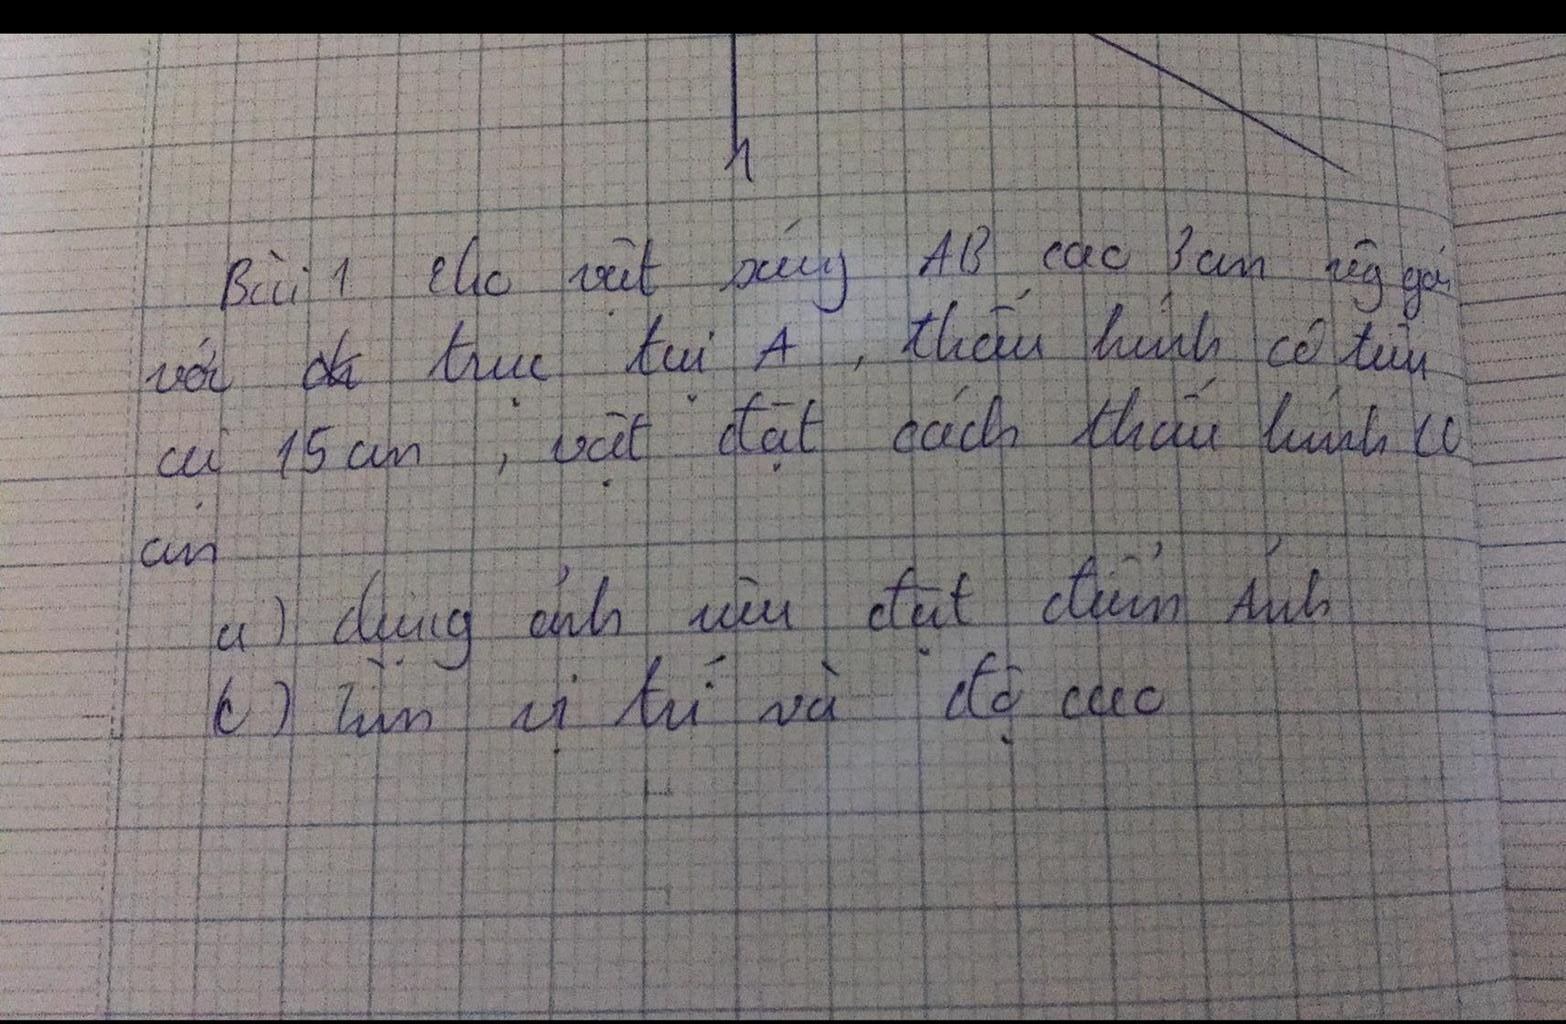 Bài 1 cho vật sáng AB cao 3cm vg gó
với trục tại A, thấu kính có tiêu
cự 15cm, vật đặt cách thấu kính
cm
a) dựng ảnh nêu đặt điểm Ảnh
b) tìm vị trí và độ cao